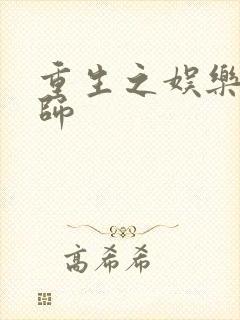 重生之娱樂
師
高希希